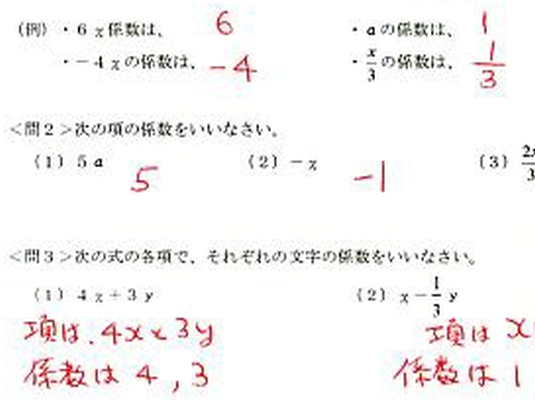 (例) ・6x係数は、 6 ・aの係数は、 1
・-4xの係数は、 -4 ・x/3の係数は、 1/3
<問2>次の項の係数をいいなさい。
(1) 5a 5 (2) -x -1 (3) 2x/3
<問3>次の式の各項で、それぞれの文字の係数をいいなさい。
(1) 4x+3y (2) x-1/3y
項は、4xと3y 項は x
係数は 4, 3 係数は 1